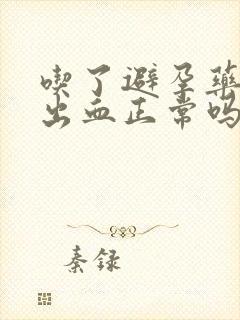 喫了避孕藥
出血正常嗎
秦録